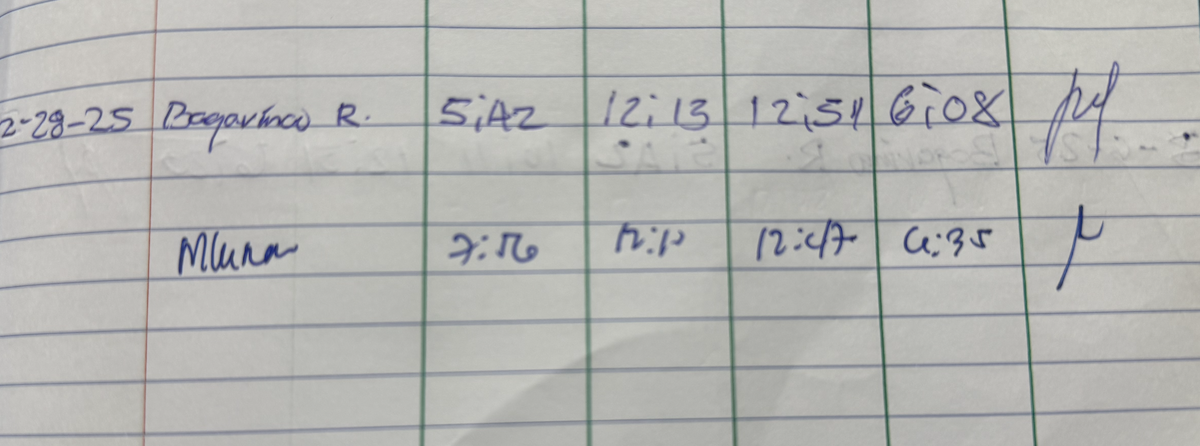 2-28-25 Bagarinao R. 5:42 12:13 12:51 6:08
7:56 12:12 12:47 6:35